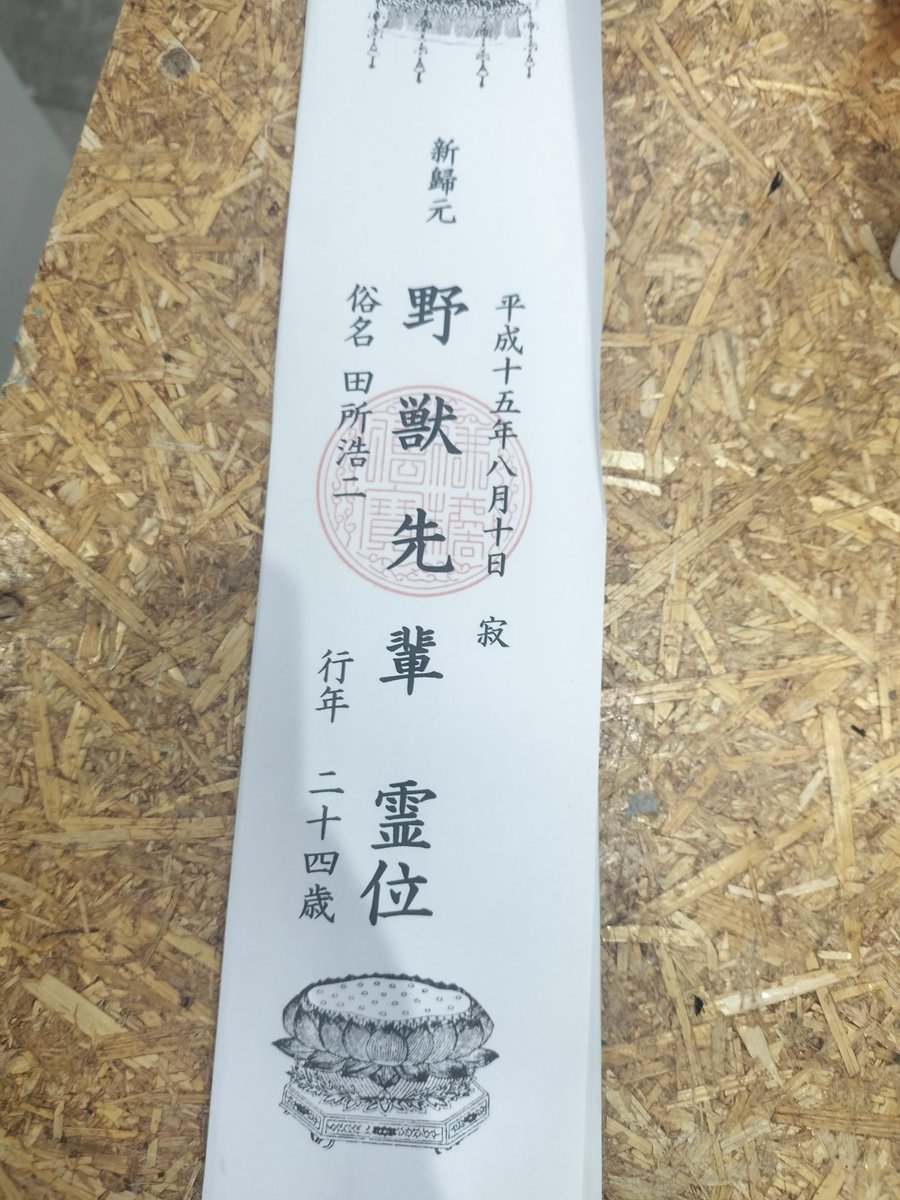 新歸元
平成十五年八月十日 寂
野獣先輩 霊位
俗名 田所浩二
行年 二十四歳